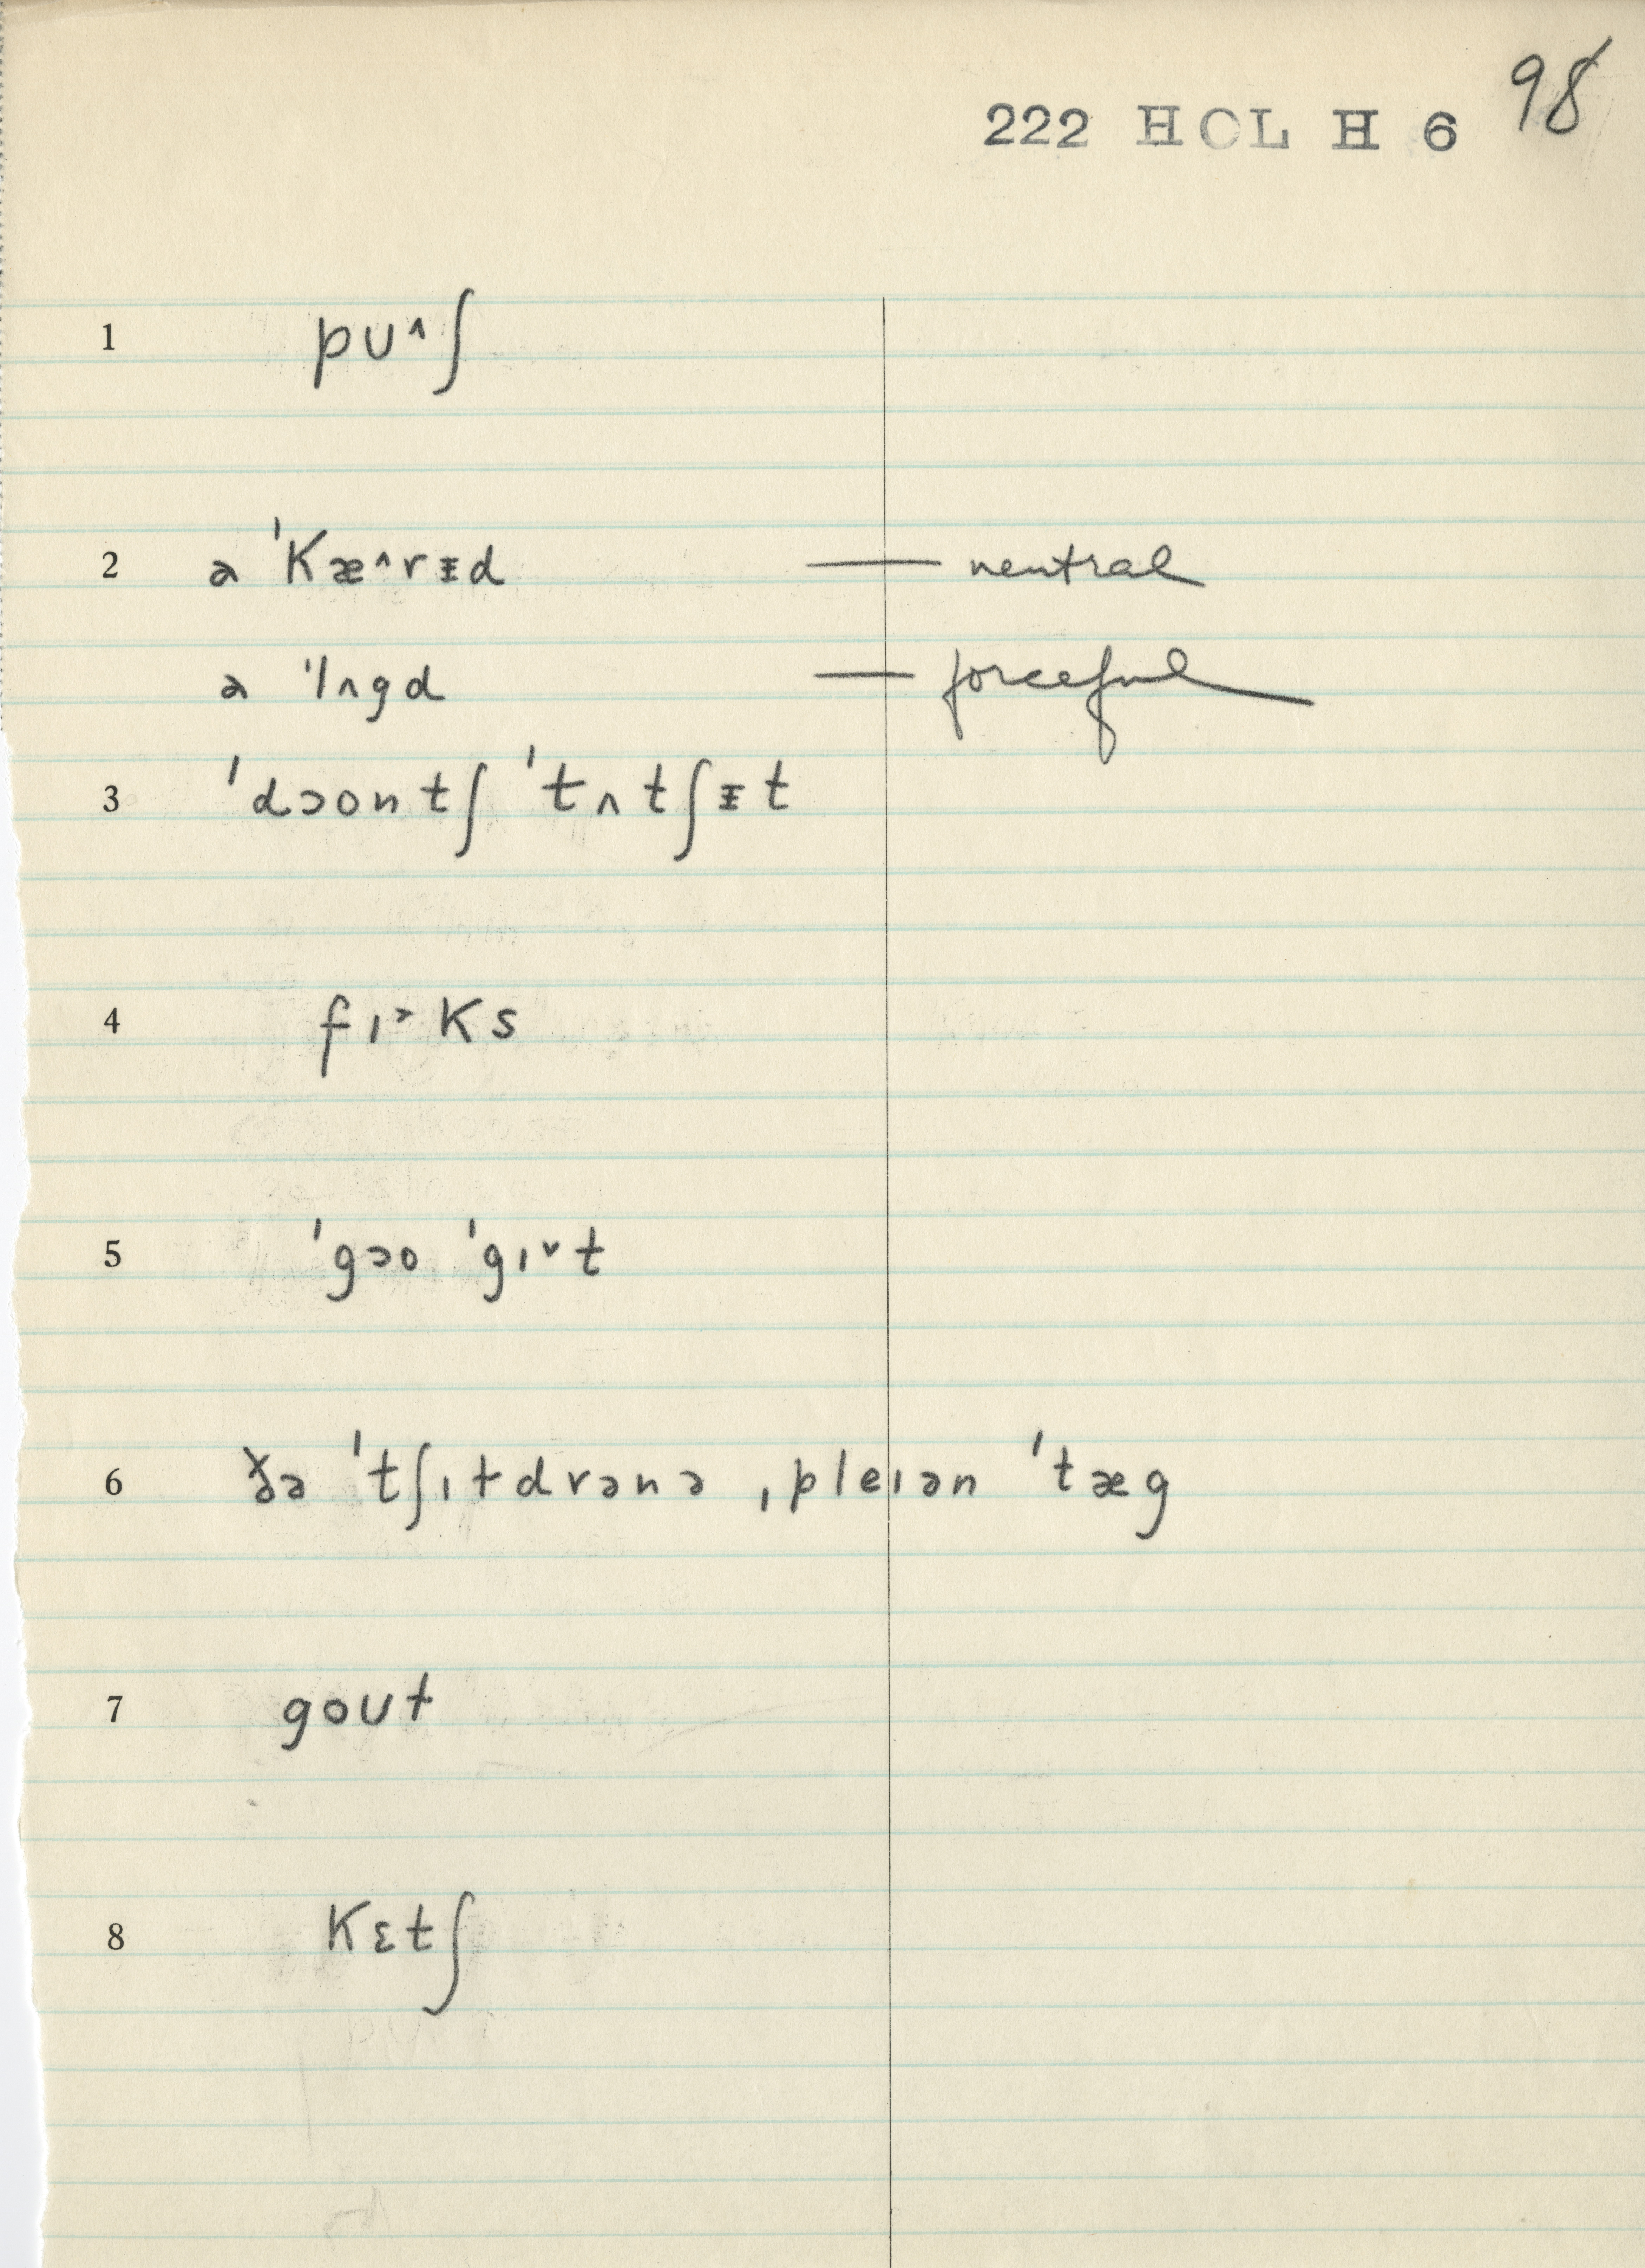 222 HOL H 6 98
1 pʊ^ʃ
2 ə ˈkæ^rᵻd — neutral
ə ˈlʌgd — forceful
3 ˈdɔontʃ ˈtʌtʃᵻt
4 fɪ˃ks
5 ˈgɔo ˈgɪ˅t
6 ðə ˈtʃɪɫdrənə ˌpleɪən ˈtæg
7 goʊt
8 kɛtʃ